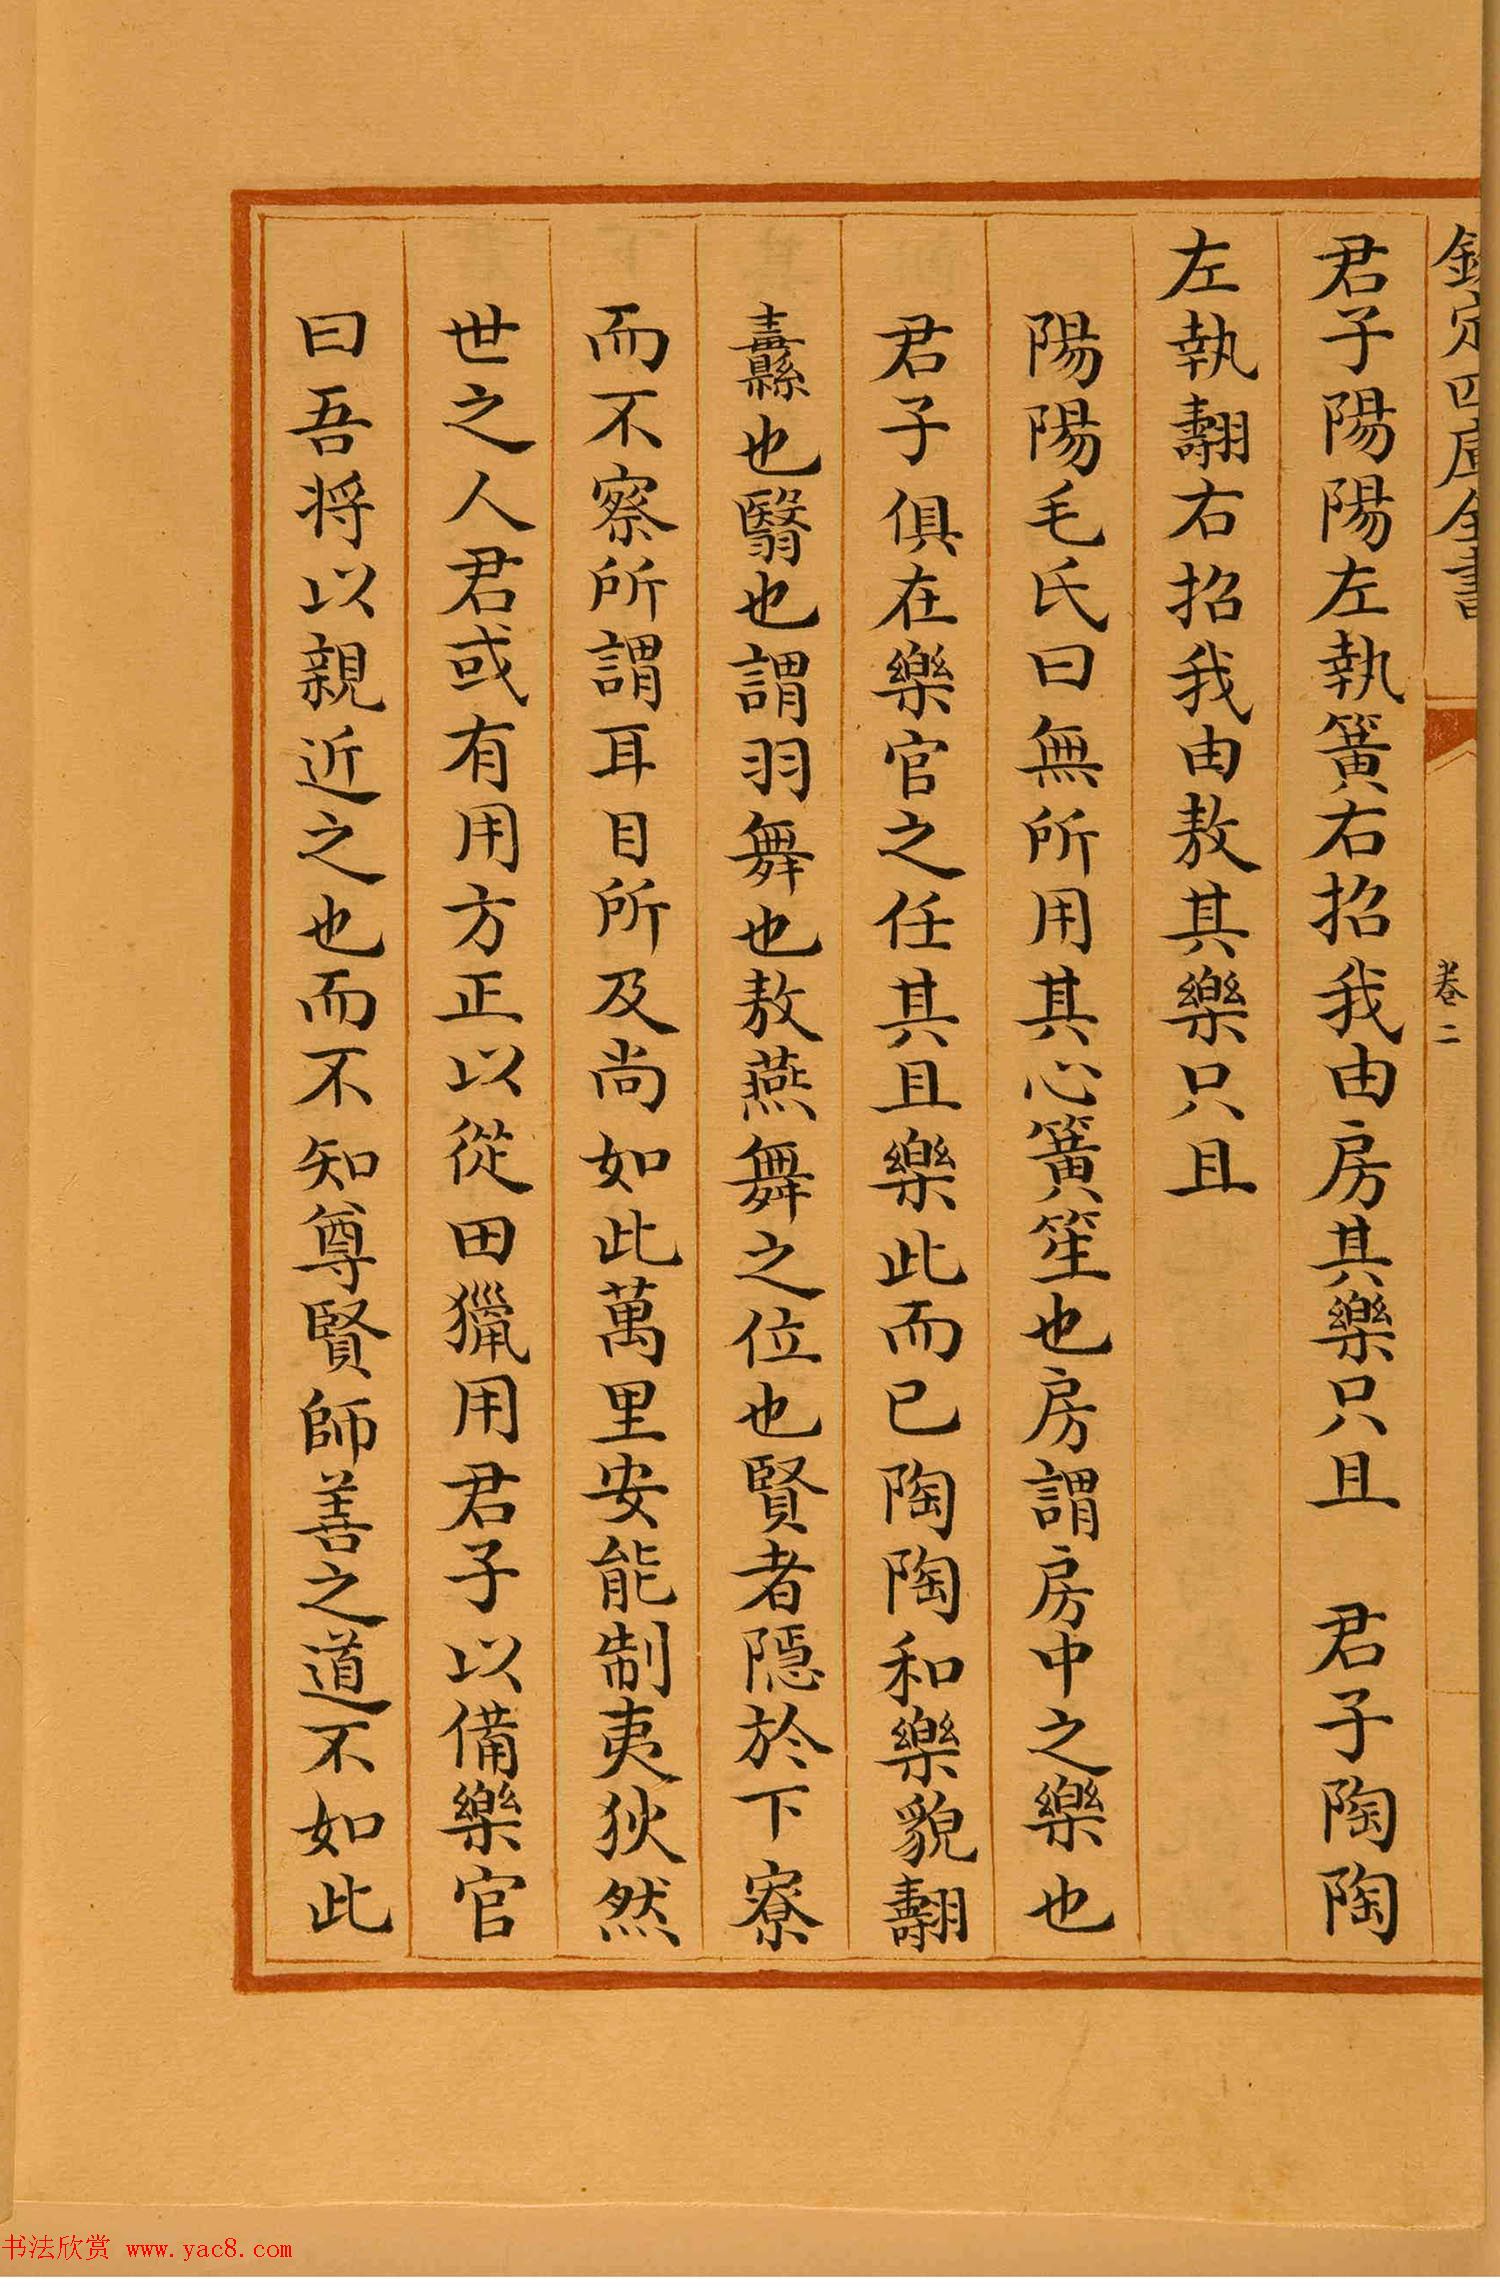 欽定四庫全書
卷二
君子陽陽左執簧右招我由房其樂只且 君子陶陶
左執翿右招我由敖其樂只且
陽陽毛氏曰無所用其心簧笙也房謂房中之樂也
君子俱在樂官之任其且樂此而已陶陶和樂貌翿
纛也翳也謂羽舞也敖燕舞之位也賢者隱於下寮
而不察所謂耳目所及尚如此萬里安能制夷狄然
世之人君或有用方正以從田獵用君子以備樂官
曰吾將以親近之也而不知尊賢師善之道不如此
书法欣赏 www.yac8.com